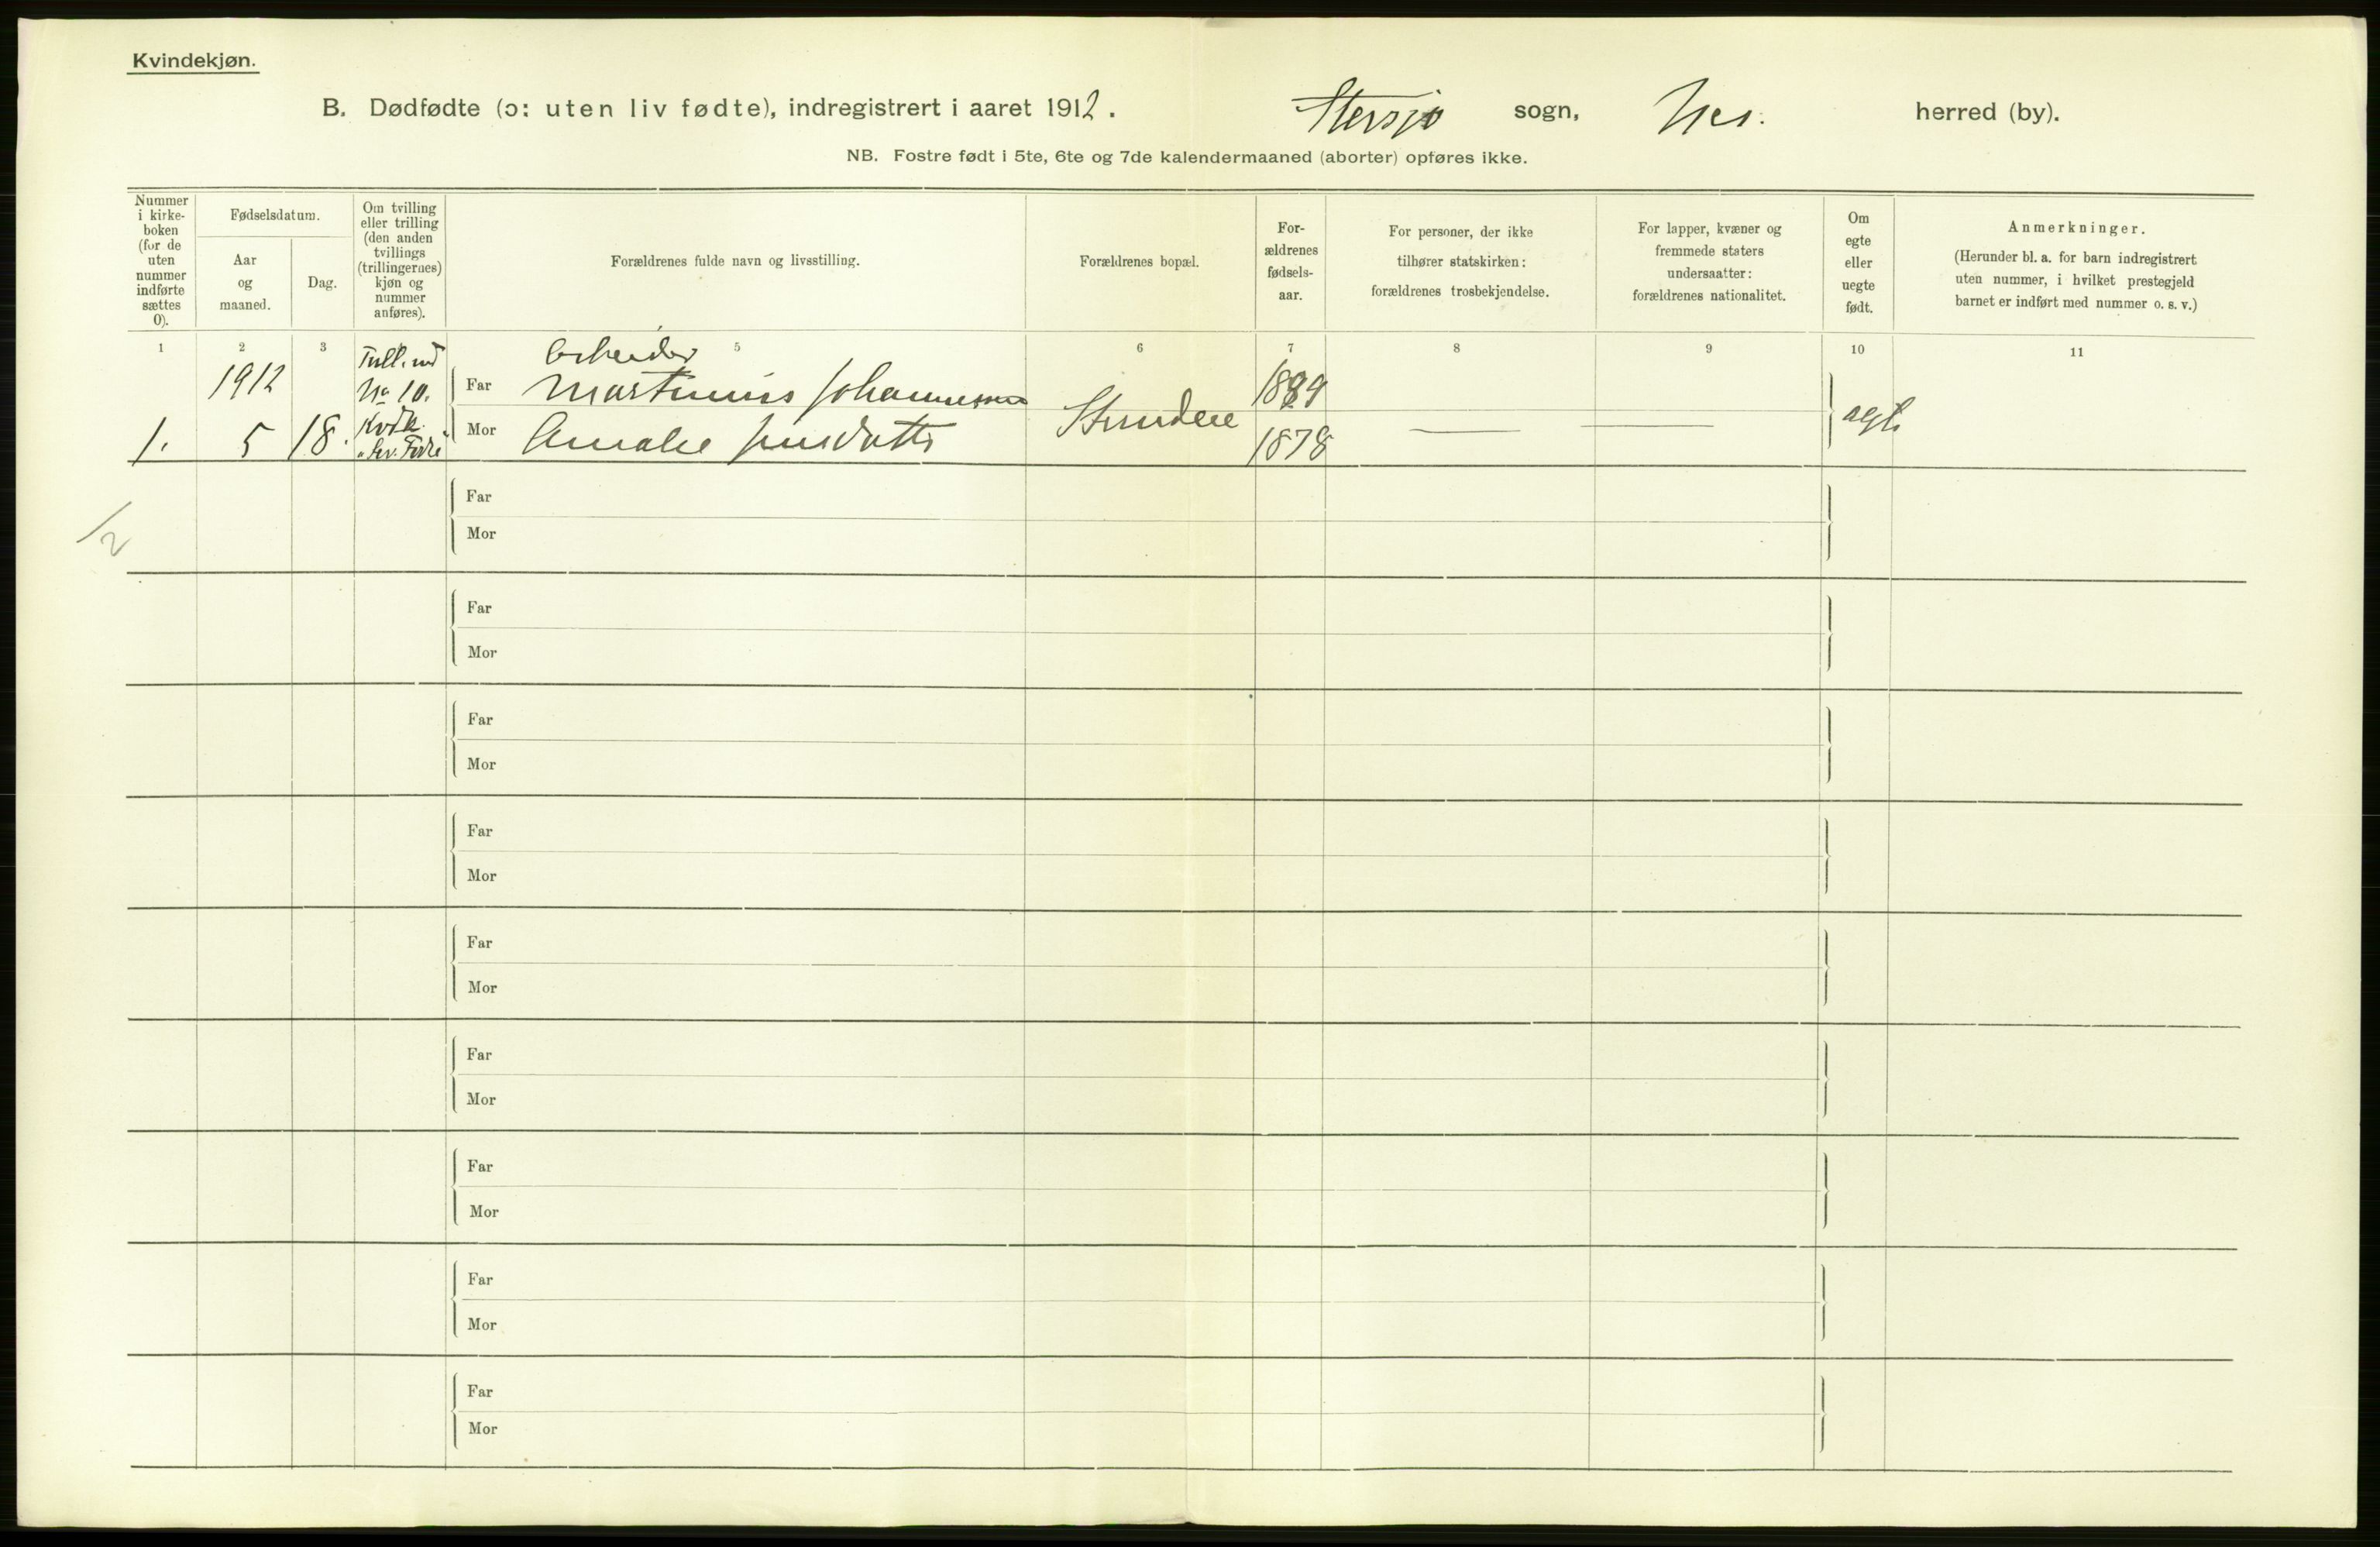 Kvindekjøn.
B. Dødfødte (ɔ: uten liv fødte), indregistrert i aaret 1912. Stersjø sogn, Nes. herred (by).
NB. Fostre født i 5te, 6te og 7de kalendermaaned (aborter) opføres ikke.
Nummer
i kirke-
boken
(for de
uten
nummer
indførte
sættes
0).
Fødselsdatum.
Aar
og
maaned.
Dag.
Om tvilling
eller trilling
(den anden
tvillings
(trillingernes)
kjøn og
nummer
anføres).
Forældrenes fulde navn og livsstilling.
Forældrenes bopæl.
For-
ældrenes
fødsels-
aar.
For personer, der ikke
tilhører statskirken:
forældrenes trosbekjendelse.
For lapper, kvæner og
fremmede staters
undersaatter:
forældrenes nationalitet.
Om
egte
eller
uegte
født.
Anmerkninger.
(Herunder bl. a. for barn indregistrert
uten nummer, i hvilket prestegjeld
barnet er indført med nummer o. s. v.)
1 2 3 5 6 7 8 9 10 11
1. 1912
5 18.
Tvill. med
No 10.
Kvdk.
Lev. Fødte
Arbeider
Far Martinius Johannessen
Mor Amalie
1889
1878
ægte
1/2
Far
Mor
Far
Mor
Far
Mor
Far
Mor
Far
Mor
Far
Mor
Far
Mor
Far
Mor
Far
Mor